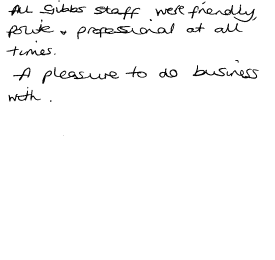 All Gibbs staff were friendly,
polite & professional at all
times.
A pleasure to do business
with.